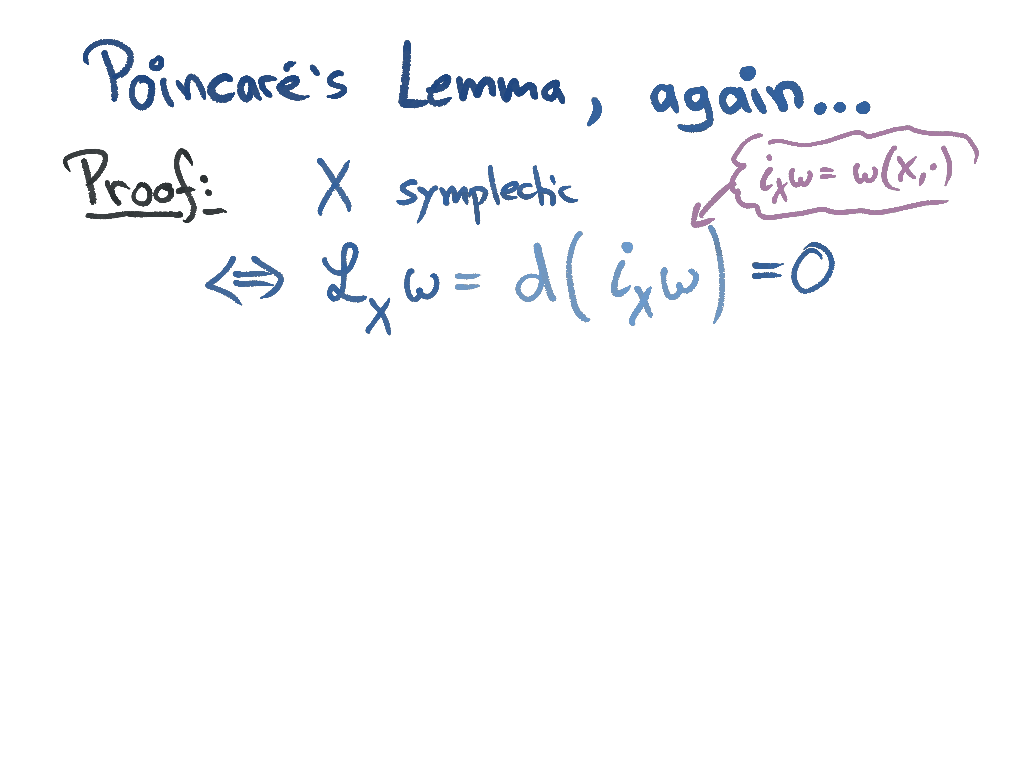 Poincaré's Lemma, again...
Proof: X symplectic
i_X ω = ω(X, ·)
⟺ ℒ_X ω = d(i_X ω) = 0